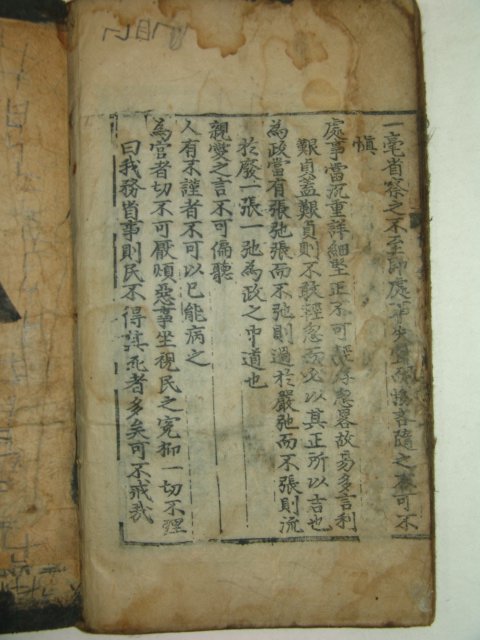 一毫省察之不至即處事失宜而悔吝隨之不可不
慎
處事當沉重詳細堅正不可輕浮忽畧故易多言利
艱貞盖艱貞則不敢輕忽而必以其正所以吉也
為政當有張弛張而不弛則過扵嚴弛而不張則流
扵廢一張一弛為政之中道也
親愛之言不可偏聽
人有不謹者不可以已能病之
為官者切不可厭煩惡事坐視民之寃抑一切不理
曰我務省事則民不得其死者多矣可不戒哉